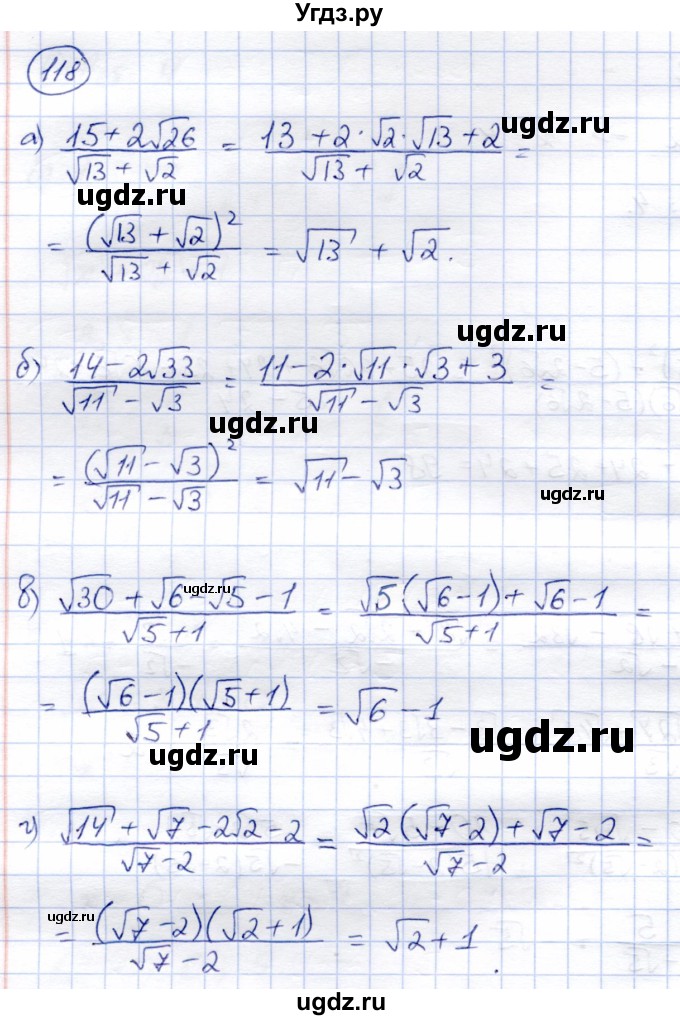 Угдз.ру
118
а) (15 + 2√26)/(√13 + √2) = (13 + 2·√2·√13 + 2)/(√13 + √2) =
ugdz.ru
ugdz.ru
= (√13 + √2)²/(√13 + √2) = √13 + √2.
ugdz.ru
б) (14 - 2√33)/(√11 - √3) = (11 - 2·√11·√3 + 3)/(√11 - √3) =
ugdz.ru
= (√11 - √3)²/(√11 - √3) = √11 - √3
ugdz.ru
в) (√30 + √6 - √5 - 1)/(√5 + 1) = (√5(√6 - 1) + √6 - 1)/(√5 + 1) =
ugdz.ru
= (√6 - 1)(√5 + 1)/(√5 + 1) = √6 - 1
ugdz.ru
ugdz.ru
г) (√14 + √7 - 2√2 - 2)/(√7 - 2) = (√2(√7 - 2) + √7 - 2)/(√7 - 2) =
ugdz.ru
= (√7 - 2)(√2 + 1)/(√7 - 2) = √2 + 1.
ugdz.ru